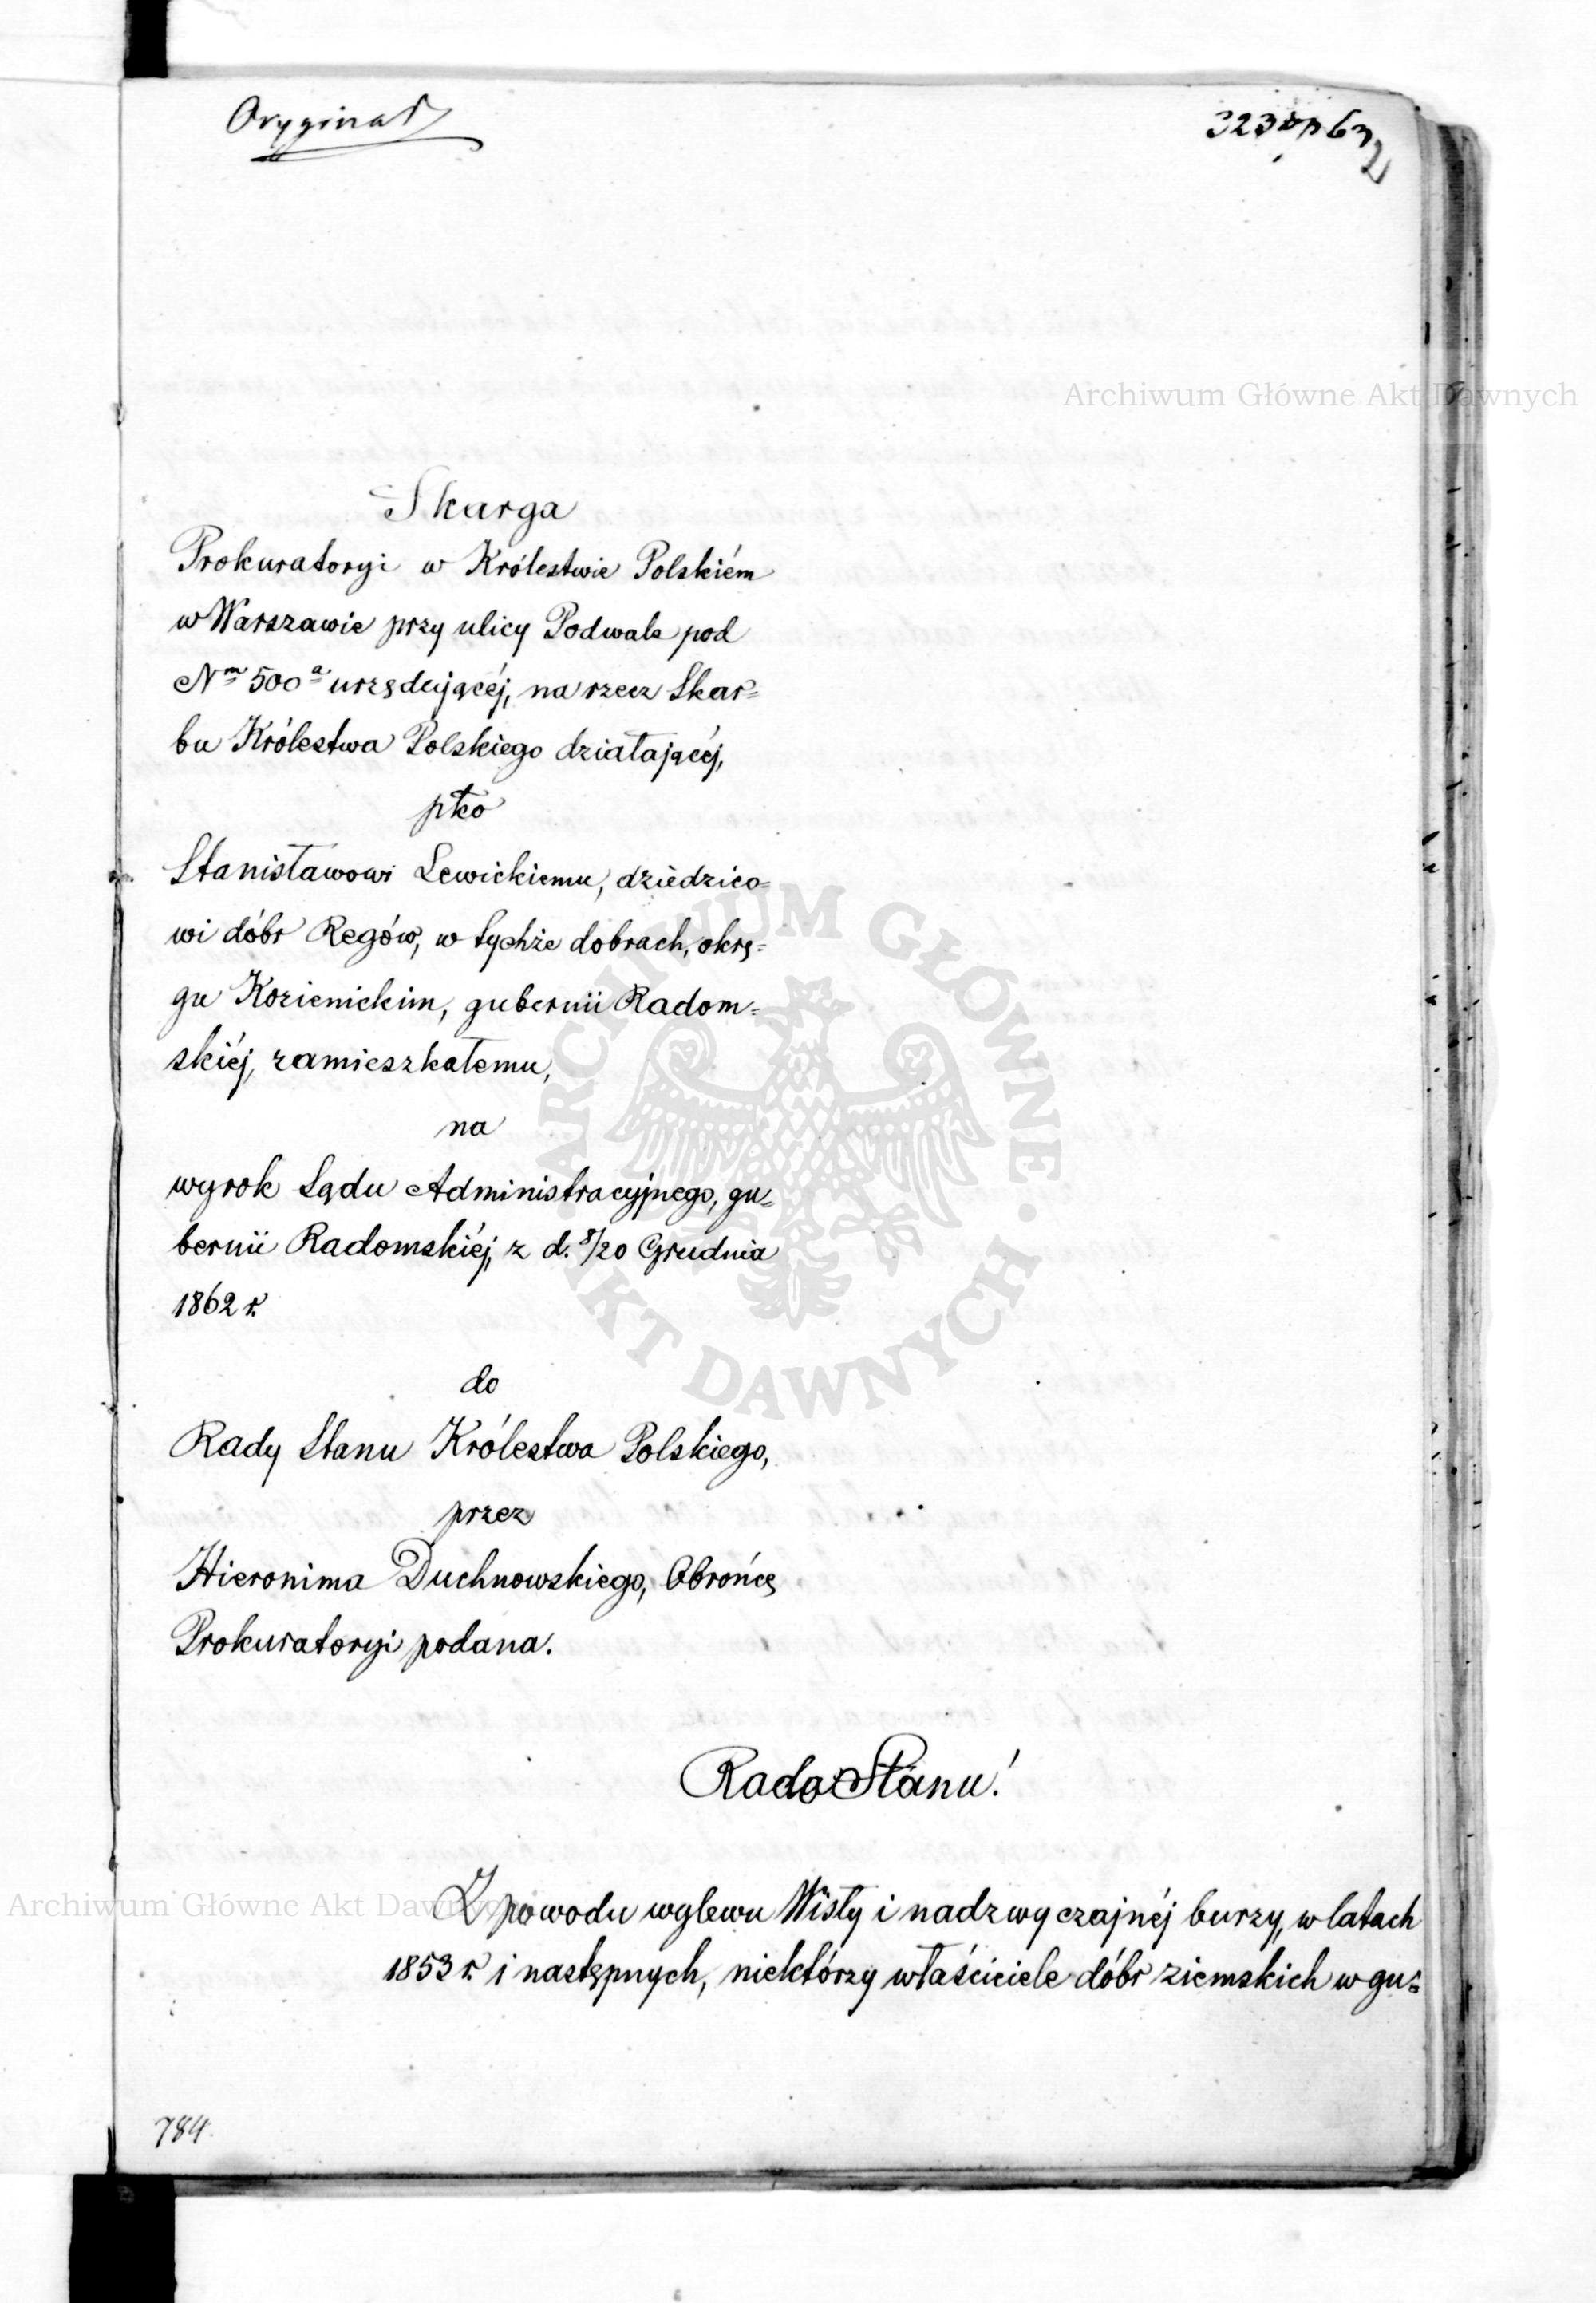 Oryginał
Archiwum Główne Akt Dawnych
Skarga
Prokuratoryi w Królestwie Polskiém
w Warszawie przy ulicy Podwale pod
Nm 500a urzędującéj, na rzecz Skar=
bu Królestwa Polskiego działającéj,
pko
Stanisławowi Lewickiemu, dziedzico=
wi dóbr Regów, w tychże dobrach, okrę=
gu Kozienickim, gubernii Radom=
skiéj, zamieszkałemu,
na
wyrok Sądu Administracyjnego, gu=
bernii Radomskiéj, z d. 8/20 Grudnia
1862 r.
do
Rady Stanu Królestwa Polskiego,
przez
Hieronima Duchnowskiego, Obrońcę
Prokuratoryi podana.
Rado Stanu!
Z powodu wylewu Wisły i nadzwyczajnéj burzy, w latach
1853 r. i następnych, niektórzy właściciele dóbr ziemskich w gu=
Archiwum Główne Akt Dawnych
784
ARCHIWUM GŁÓWNE · AKT DAWNYCH ·